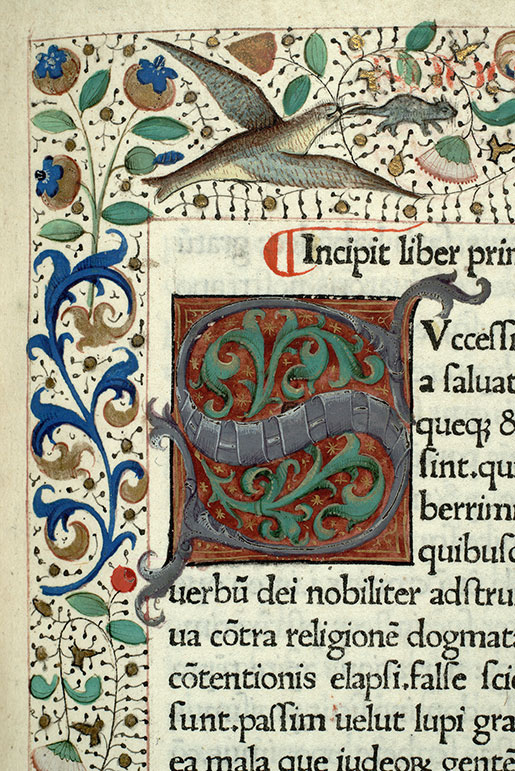 ⸿ Incipit liber prim
SVccessi
a saluat
queqꝫ &
sint.qui
berrim
quibusc
uerbū dei nobiliter adstru
ua cōtra religionē dogmata
cōtentionis elapsi.false scie
sunt.passim uelut lupi gra
ea mala que iudeoꝝ gente